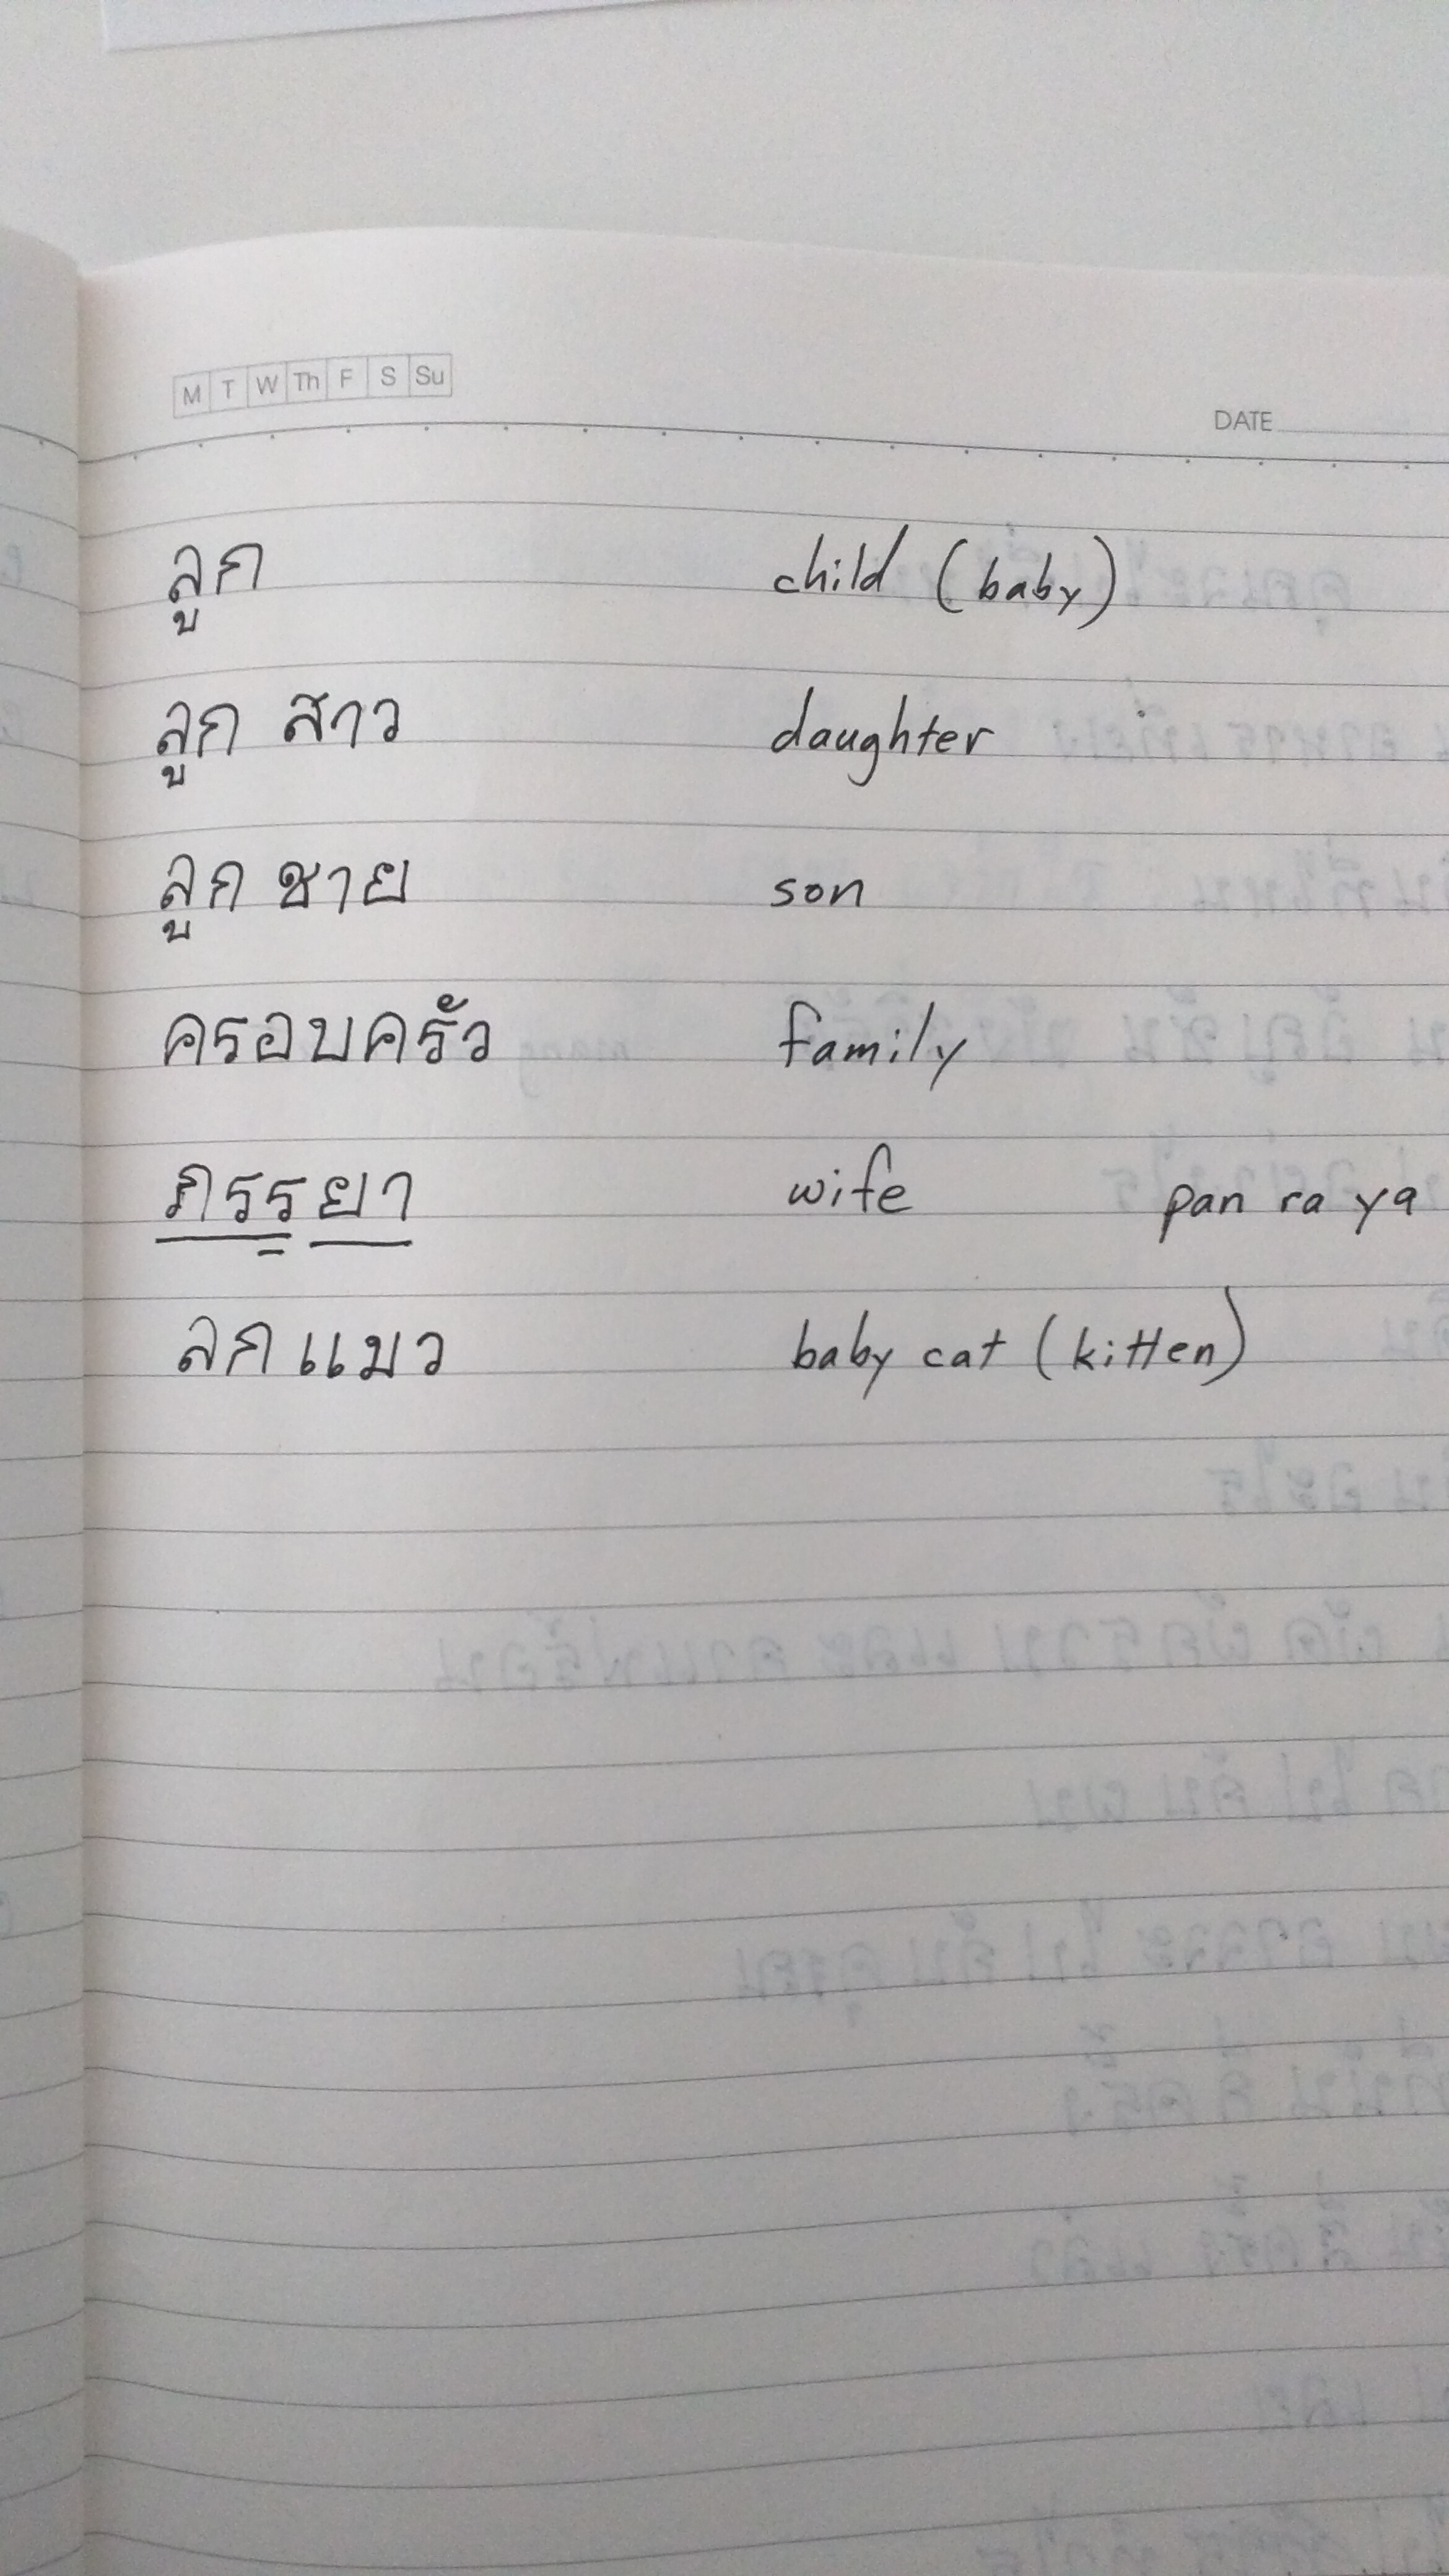 M T W Th F S Su
DATE
ลูก child (baby)
ลูก สาว daughter
ลูก ชาย son
ครอบครัว family
ภรรยา wife pan ra ya
ลกแมว baby cat (kitten)